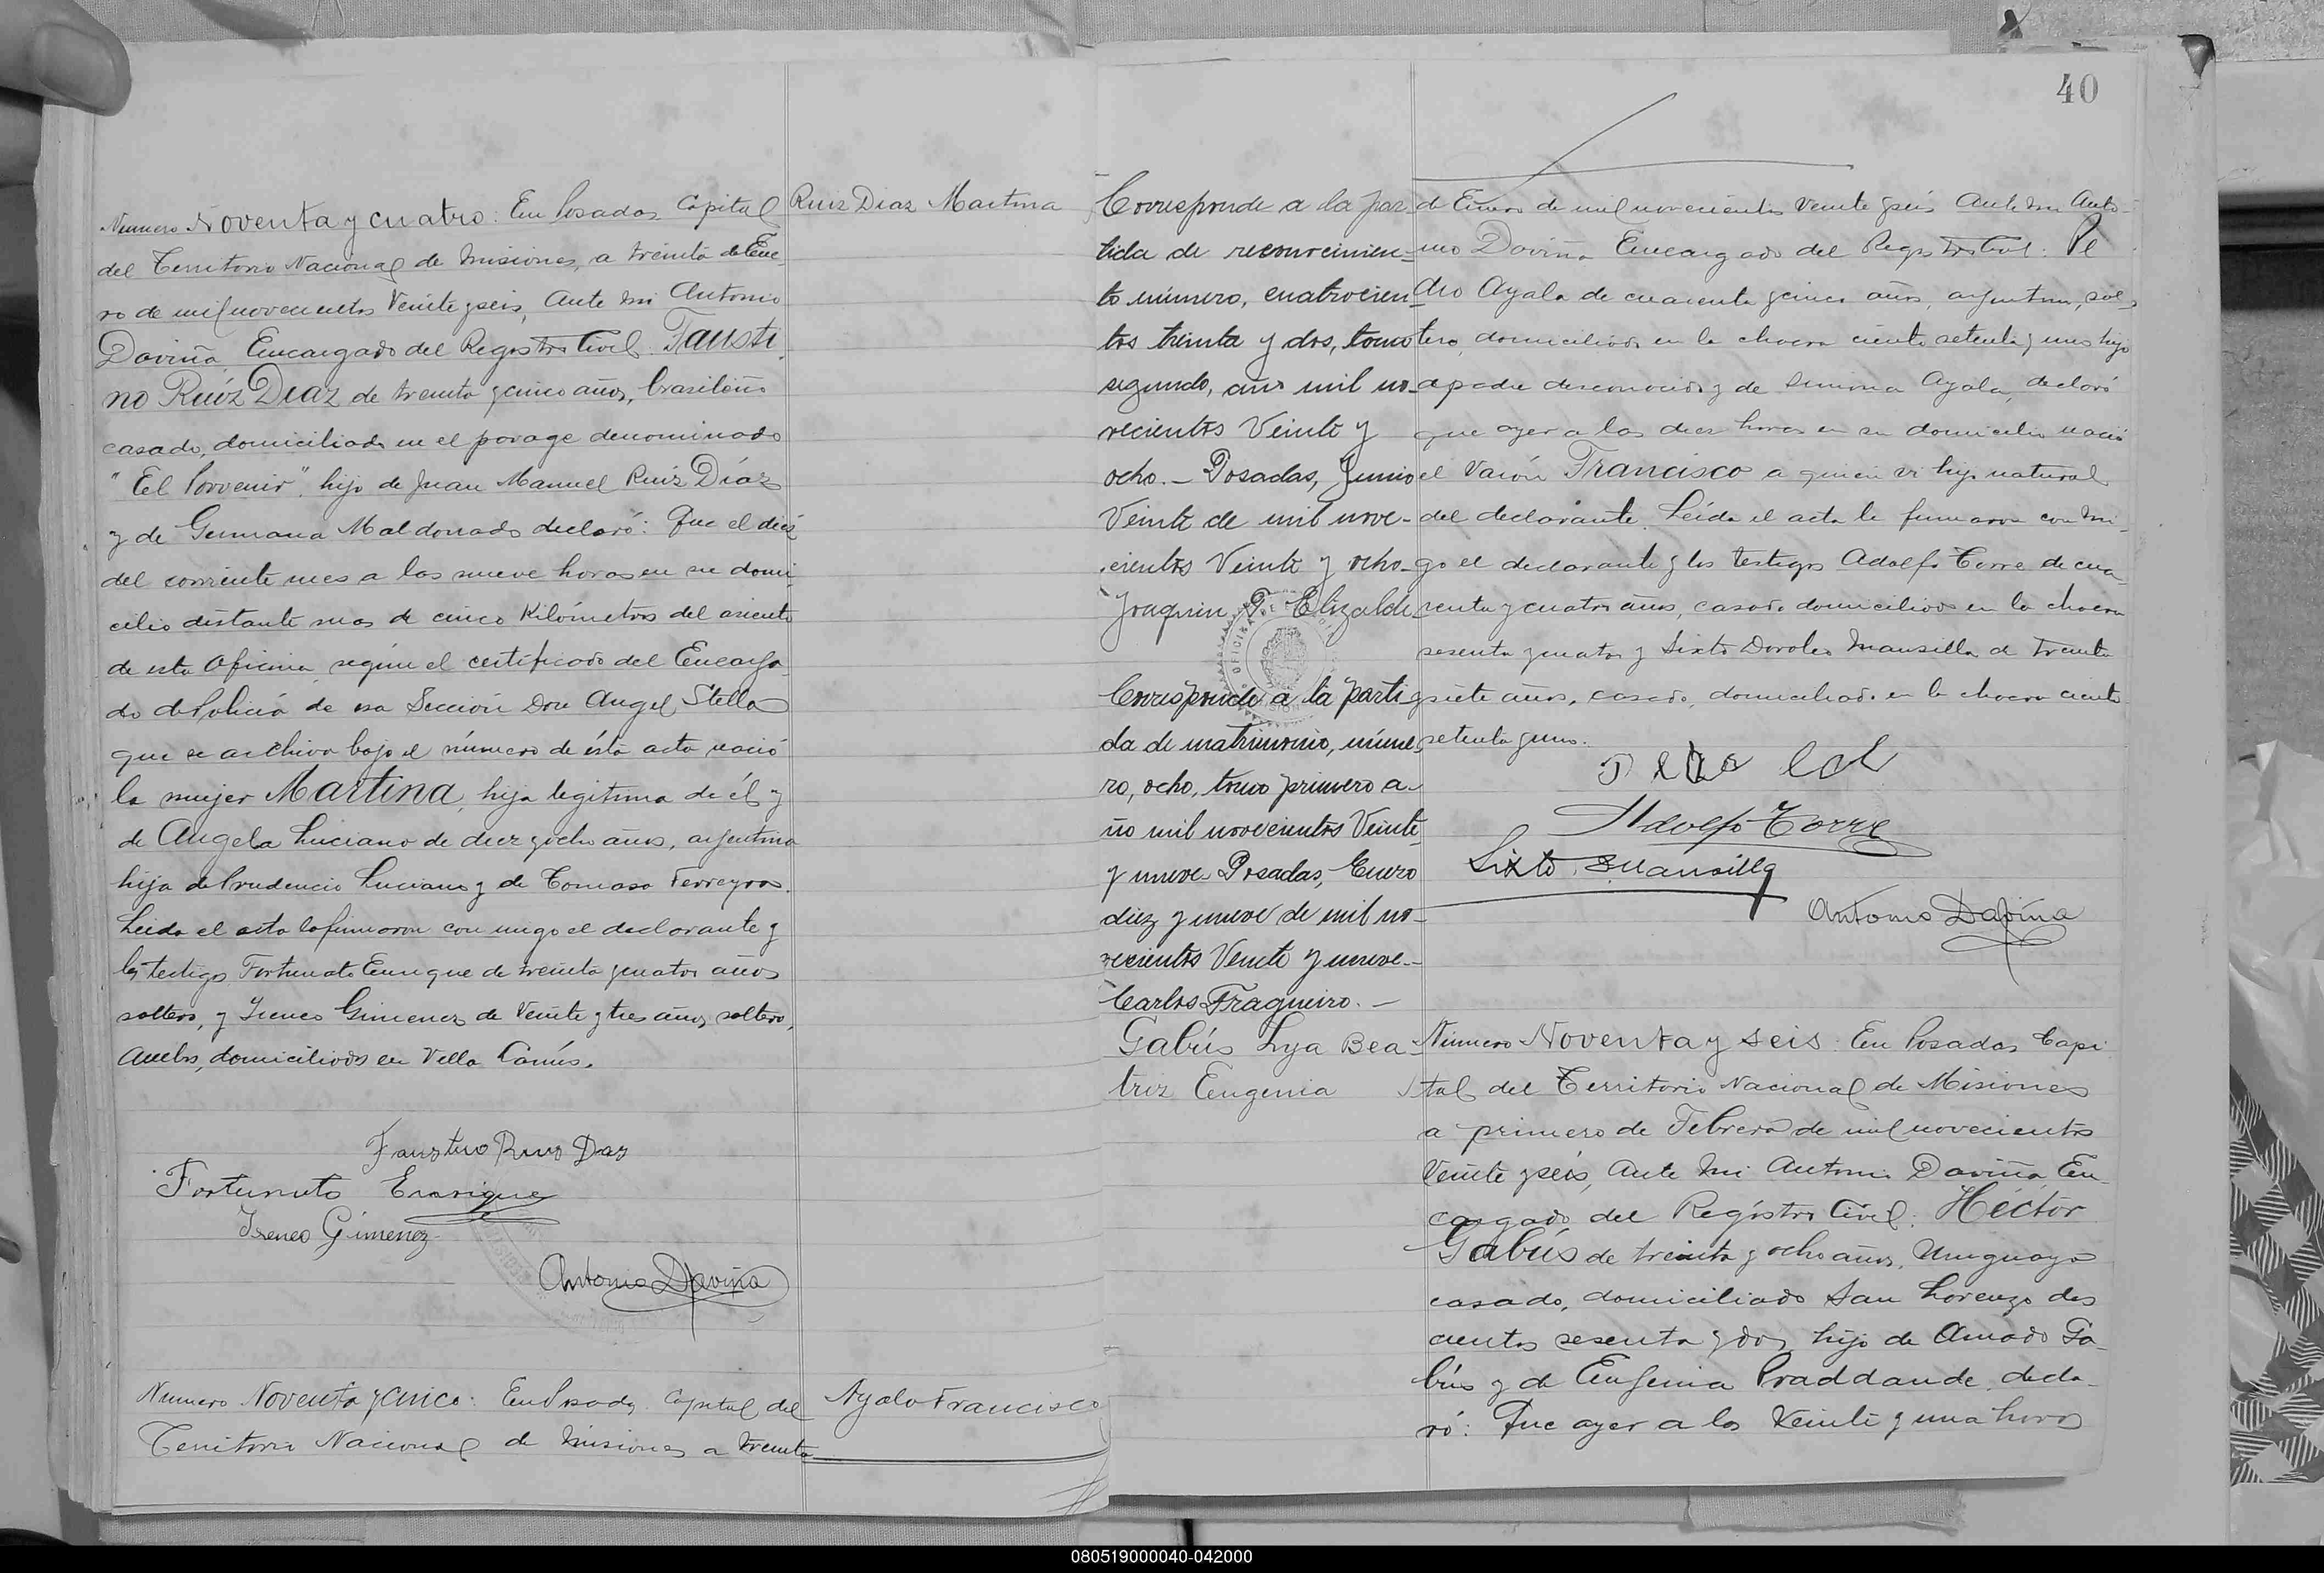 Numero Noventa y cuatro: En Posadas Capital
del Territorio Nacional de Misiones, a treinta de Ene-
ro de mil novecientos Veinte y seis, Ante mi Antonio
Daviña Encargado del Registro Civil: Fausti-
no Ruíz Díaz de treinta y cinco años, brasileño
casado, domiciliado en el parage denominado
"El Porvenir", hijo de Juan Manuel Ruiz Díaz
y de Germana Maldonado declaró: Que el diez
del corriente mes a las nueve horas en su domi
cilio distante mas de cinco Kilómetros del asiento
de esta Oficina, según el certificado del Encarga-
do de Policía de esa Sección Don Angel Stella
que se archiva bajo el número de ésta acta nació
la mujer Martina, hija legitima de él y
de Angela Luciano de diez y ocho años, argentina
hija de Prudencio Luciano y de Tomasa Ferreyra.
Leida el acta la firmaron con migo el declarante y
los testigos Fortunato Enrique de treinta y cuatro años
soltero, y Ireneo Gimenez de Veinte y tres años, soltero,
Ambos, domiciliados en Villa Lanús.
Faustino Ruiz Daz
Fortunato Enrique
Ireneo Gimenez
Antonio Daviña
Ruiz Diaz Martina
Numero Noventa y cinco: En Posadas Capital del
Territorio Nacional de Misiones a treinta
Ayala Francisco
40
de Enero de mil novecientos Veinte y seis Ante mi Anto-
nio Daviña Encargado del Registro Civil: Pe
dro Ayala de cuarenta y cinco años, argentino, sol-
tero, domiciliado en la chacra ciento setenta y uno hijo
de padre desconocido y de Simona Ayala, declaró
que ayer a las diez horas en su domicilio nació
el Varón Francisco a quien vi hijo natural
del declarante. Leida el acta la firmaron con mi-
go el declarante y los testigos Adolfo Torre de cua-
renta y cuatro años, casado domiciliado en la chacra
sesenta y cuatro y Sixto Mansilla de treinta
y siete años, casado, domiciliado en la chacra ciento
setenta y uno.
Adolfo Torre
Sixto Mansilla
Antonio Daviña
Corresponde a la par-
tida de reconocimien-
to número, cuatrocien-
tos treinta y dos, tomo
segundo, año mil no-
vecientos Veinte y
ocho.- Posadas, Junio
Veinte de mil nove-
cientos Veinte y ocho-
Joaquin F. Elizalde
Corresponde a la parti-
da de matrimonio, núme-
ro, ocho, tomo primero a-
ño mil novecientos Veinte
y nueve- Posadas, Enero
diez y nueve de mil no-
vecientos Veinte y nueve-
Carlos Fragueiro.-
Gabús Lya Bea-
triz Eugenia
Número Noventa y seis: En Posadas Capi
tal del Territorio Nacional de Misiones
a primero de Febrero de mil novecientos
Veinte y seis, Ante mi Antonio Daviña, En-
cargado del Registro Civil: Héctor
Gabús de treinta y ocho años, Uruguayo
casado, domiciliado San Lorenzo dos
cientos sesenta y dos, hijo de Amado Ga-
bús y de Eugenia Praddaude, decla-
ró: Que ayer a las Veinte y una horas
080519000040-042000